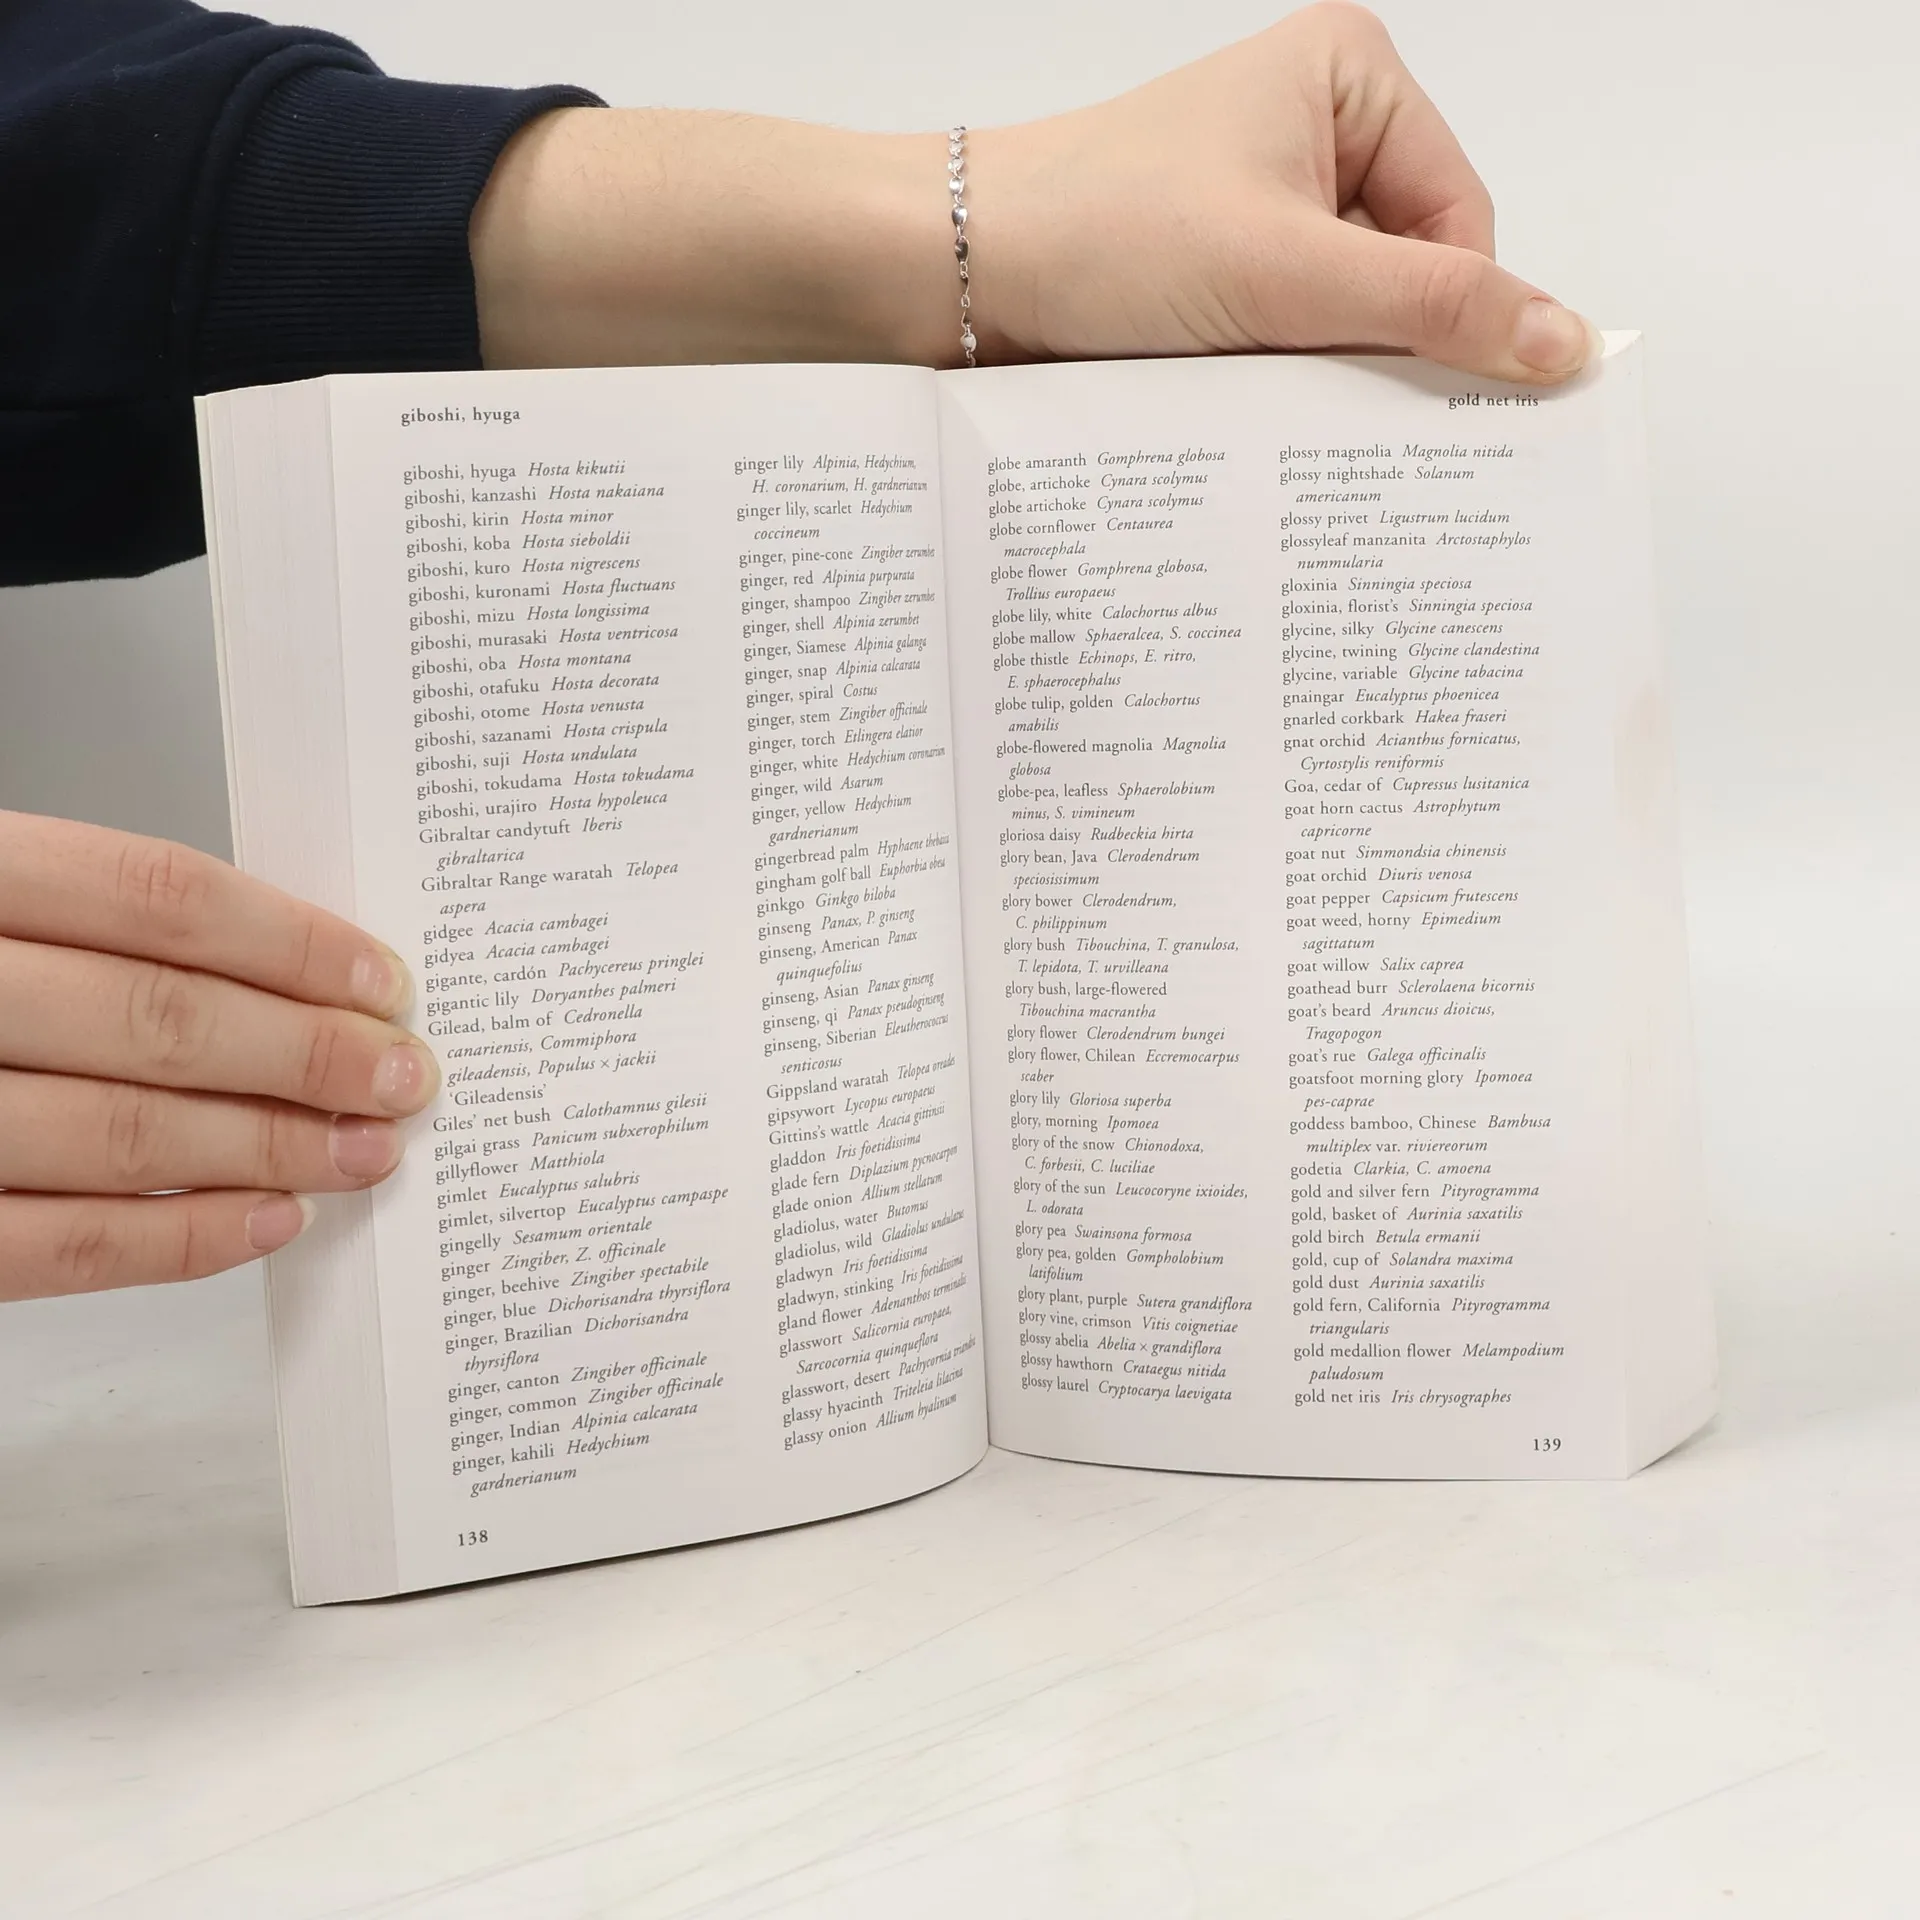 giboshi, hyuga
giboshi, hyuga Hosta kikutii
giboshi, kanzashi Hosta nakaiana
giboshi, kirin Hosta minor
giboshi, koba Hosta sieboldii
giboshi, kuro Hosta nigrescens
giboshi, kuronami Hosta fluctuans
giboshi, mizu Hosta longissima
giboshi, murasaki Hosta ventricosa
giboshi, oba Hosta montana
giboshi, otafuku Hosta decorata
giboshi, otome Hosta venusta
giboshi, sazanami Hosta crispula
giboshi, suji Hosta undulata
giboshi, tokudama Hosta tokudama
giboshi, urajiro Hosta hypoleuca
Gibraltar candytuft Iberis
gibraltarica
Gibraltar Range waratah Telopea
aspera
gidgee Acacia cambagei
gidyea Acacia cambagei
gigante, cardón Pachycereus pringlei
gigantic lily Doryanthes palmeri
Gilead, balm of Cedronella
canariensis, Commiphora
gileadensis, Populus × jackii
‘Gileadensis’
Giles’ net bush Calothamnus gilesii
gilgai grass Panicum subxerophilum
gillyflower Matthiola
gimlet Eucalyptus salubris
gimlet, silvertop Eucalyptus campaspe
gingelly Sesamum orientale
ginger Zingiber, Z. officinale
ginger, beehive Zingiber spectabile
ginger, blue Dichorisandra thyrsiflora
ginger, Brazilian Dichorisandra
thyrsiflora
ginger, canton Zingiber officinale
ginger, common Zingiber officinale
ginger, Indian Alpinia calcarata
ginger, kahili Hedychium
gardnerianum
ginger lily Alpinia, Hedychium,
H. coronarium, H. gardnerianum
ginger lily, scarlet Hedychium
coccineum
ginger, pine-cone Zingiber zerumbet
ginger, red Alpinia purpurata
ginger, shampoo Zingiber zerumbet
ginger, shell Alpinia zerumbet
ginger, Siamese Alpinia galanga
ginger, snap Alpinia calcarata
ginger, spiral Costus
ginger, stem Zingiber officinale
ginger, torch Etlingera elatior
ginger, white Hedychium coronarium
ginger, wild Asarum
ginger, yellow Hedychium
gardnerianum
gingerbread palm Hyphaene thebaica
gingham golf ball Euphorbia obesa
ginkgo Ginkgo biloba
ginseng Panax, P. ginseng
ginseng, American Panax
quinquefolius
ginseng, Asian Panax ginseng
ginseng, qi Panax pseudoginseng
ginseng, Siberian Eleutherococcus
senticosus
Gippsland waratah Telopea oreades
gipsywort Lycopus europaeus
Gittins’s wattle Acacia gittinsii
gladdon Iris foetidissima
glade fern Diplazium pycnocarpon
glade onion Allium stellatum
gladiolus, water Butomus
gladiolus, wild Gladiolus undulatus
gladwyn Iris foetidissima
gladwyn, stinking Iris foetidissima
gland flower Adenanthos terminalis
glasswort Salicornia europaea,
Sarcocornia quinqueflora
glasswort, desert Pachycornia triandra
glassy hyacinth Triteleia lilacina
glassy onion Allium hyalinum
138
gold net iris
globe amaranth Gomphrena globosa
globe, artichoke Cynara scolymus
globe artichoke Cynara scolymus
globe cornflower Centaurea
macrocephala
globe flower Gomphrena globosa,
Trollius europaeus
globe lily, white Calochortus albus
globe mallow Sphaeralcea, S. coccinea
globe thistle Echinops, E. ritro,
E. sphaerocephalus
globe tulip, golden Calochortus
amabilis
globe-flowered magnolia Magnolia
globosa
globe-pea, leafless Sphaerolobium
minus, S. vimineum
gloriosa daisy Rudbeckia hirta
glory bean, Java Clerodendrum
speciosissimum
glory bower Clerodendrum,
C. philippinum
glory bush Tibouchina, T. granulosa,
T. lepidota, T. urvilleana
glory bush, large-flowered
Tibouchina macrantha
glory flower Clerodendrum bungei
glory flower, Chilean Eccremocarpus
scaber
glory lily Gloriosa superba
glory, morning Ipomoea
glory of the snow Chionodoxa,
C. forbesii, C. luciliae
glory of the sun Leucocoryne ixioides,
L. odorata
glory pea Swainsona formosa
glory pea, golden Gompholobium
latifolium
glory plant, purple Sutera grandiflora
glory vine, crimson Vitis coignetiae
glossy abelia Abelia × grandiflora
glossy hawthorn Crataegus nitida
glossy laurel Cryptocarya laevigata
glossy magnolia Magnolia nitida
glossy nightshade Solanum
americanum
glossy privet Ligustrum lucidum
glossyleaf manzanita Arctostaphylos
nummularia
gloxinia Sinningia speciosa
gloxinia, florist’s Sinningia speciosa
glycine, silky Glycine canescens
glycine, twining Glycine clandestina
glycine, variable Glycine tabacina
gnaingar Eucalyptus phoenicea
gnarled corkbark Hakea fraseri
gnat orchid Acianthus fornicatus,
Cyrtostylis reniformis
Goa, cedar of Cupressus lusitanica
goat horn cactus Astrophytum
capricorne
goat nut Simmondsia chinensis
goat orchid Diuris venosa
goat pepper Capsicum frutescens
goat weed, horny Epimedium
sagittatum
goat willow Salix caprea
goathead burr Sclerolaena bicornis
goat’s beard Aruncus dioicus,
Tragopogon
goat’s rue Galega officinalis
goatsfoot morning glory Ipomoea
pes-caprae
goddess bamboo, Chinese Bambusa
multiplex var. riviereorum
godetia Clarkia, C. amoena
gold and silver fern Pityrogramma
gold, basket of Aurinia saxatilis
gold birch Betula ermanii
gold, cup of Solandra maxima
gold dust Aurinia saxatilis
gold fern, California Pityrogramma
triangularis
gold medallion flower Melampodium
paludosum
gold net iris Iris chrysographes
139